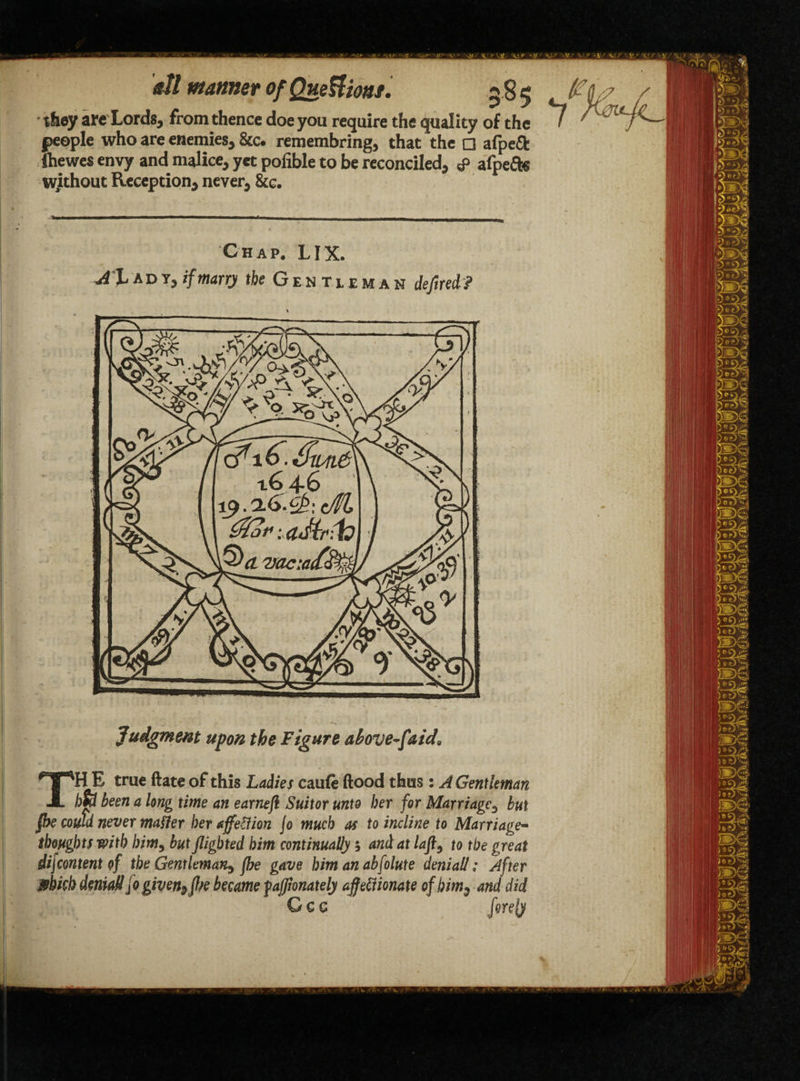 all manner of Queſtions. 385
they are Lords, from thence doe you require the quality of the
people who are enemies, &c. remembring, that the □ aſpect
ſhewes envy and malice, yet poſible to be reconciled, ☍ aſpects
without Reception, never, &c.
7th Houſe
CHAP. LIX.
A LADY, if marry the GENTLEMAN deſired?
♂ 16. June
1646
19.26. P: M
Hor: aſtr: ♄
☽ a vac: ad
Judgment upon the Figure above-ſaid.
THE true ſtate of this Ladies cauſe ſtood thus: A Gentleman
had been a long time an earneſt Suitor unto her for Marriage, but
ſhe could never maſter her affection ſo much as to incline to Marriage-
thoughts with him, but ſlighted him continually; and at laſt, to the great
diſcontent of the Gentleman, ſhe gave him an abſolute deniall: After
which deniall ſo given, ſhe became paſſionately affectionate of him, and did
Ccc ſorely